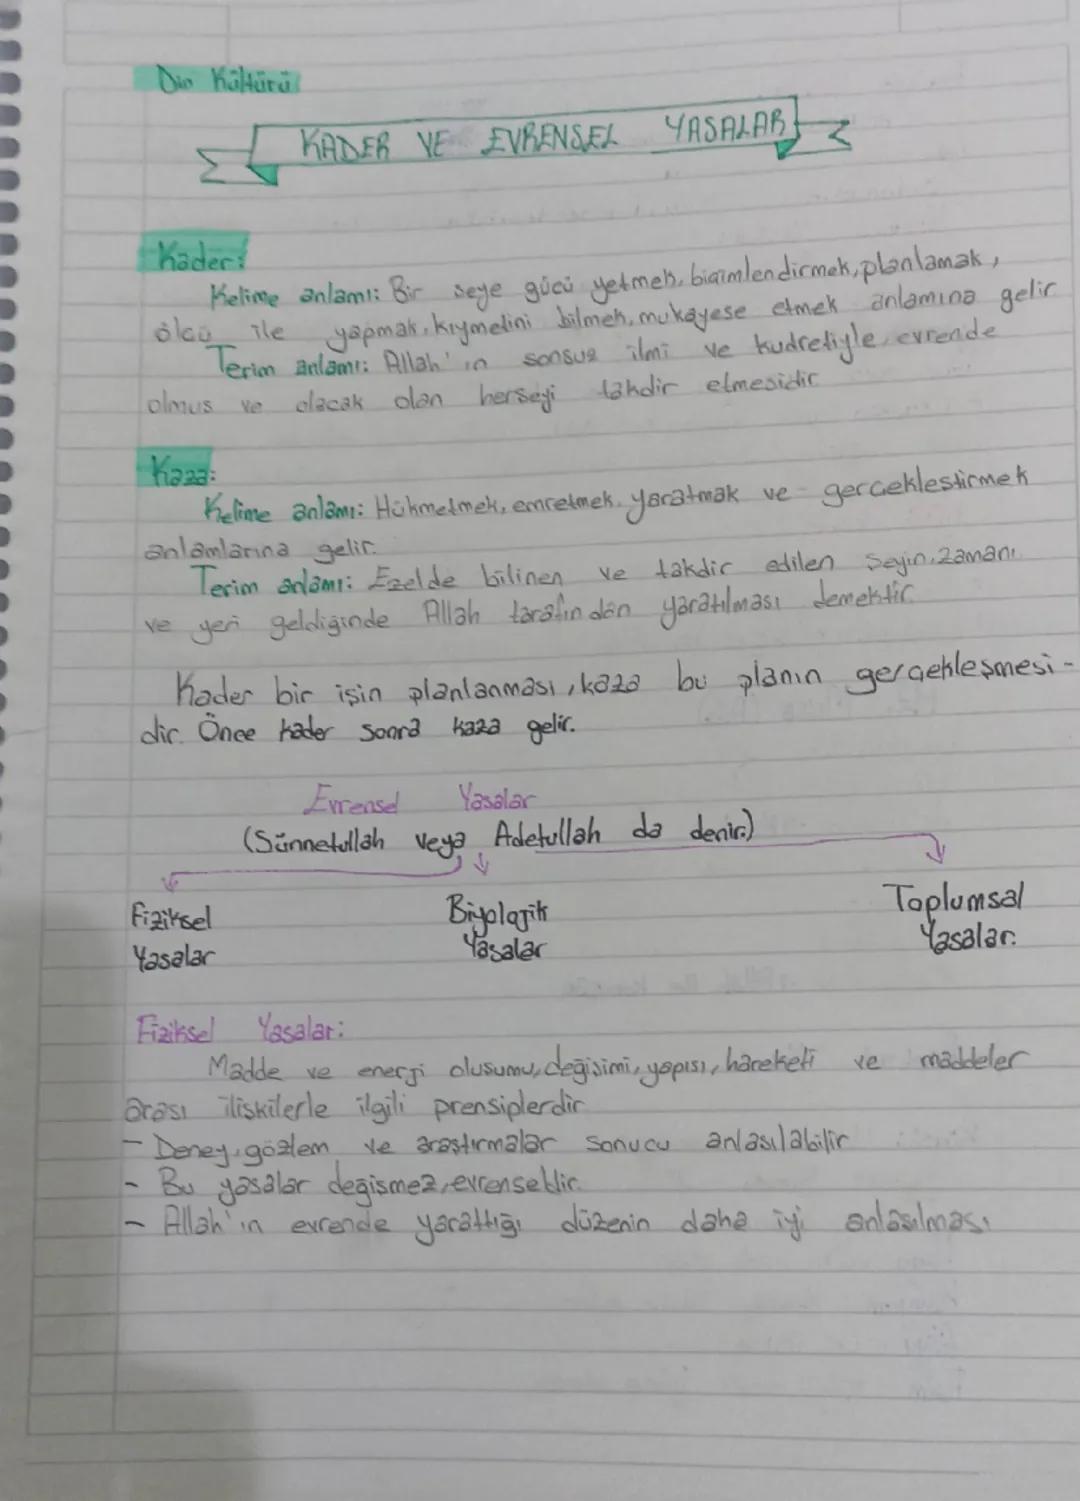 Din Kültürü
KADER VE EVRENSEL YASALAR
Kader:
Kelime anlamı: Bir seye gücü yetmek, biçimlendirmek, planlamak,
ölcü ile yapmak, kıymetini bilmek, mukayese etmek anlamına gelir
Terim anlamı: Allah'ın sonsuz ilmi ve kudretiyle, evrende
olmus ve olacak olan herseyi takdir etmesidir
Kaza:
Kelime anlamı: Hükmetmek, emretmek, yaratmak ve gerceklestirmek
anlamlarına gelir.
Terim anlamı: Ezelde bilinen ve takdir edilen seyin, zamanı
ve yeri geldiğinde Allah tarafından yaratılması demektir.
Kader bir işin planlanması, kaza bu planın gerçekleşmesi-
dir. Önce kader sonra kaza gelir.
Evrensel Yasalar
(Sünnetullah veya Adetullah da denir.)
Fiziksel Biyolojik Toplumsal
Yasalar Yasalar Yasalar.
Fiziksel Yasalar:
Madde ve enerji olusumu, değişimi, yapısı, hareketi ve maddeler
arası iliskilerle ilgili prensiplerdir
- Deney, gözlem ve araştırmalar sonucu anlasılabilir
- Bu yasalar değişmez, evrenseldir.
- Allah'ın evrende yarattığı düzenin daha iyi anlasılması